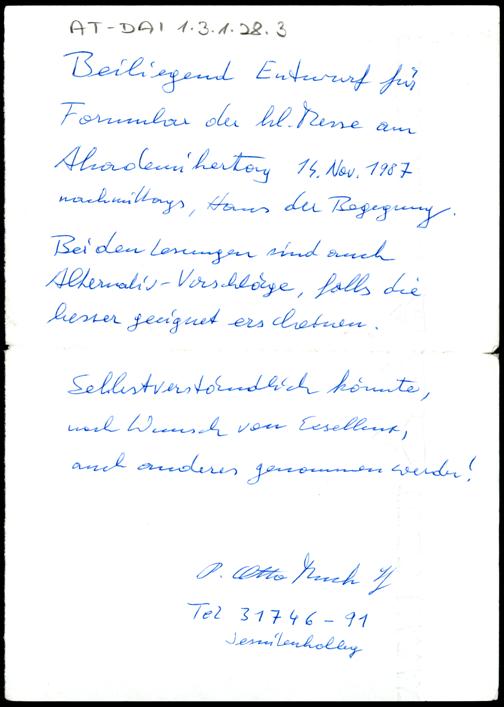 AT-DAI 1.3.1.28.3
Beiliegend Entwurf für
Formular der hl. Messe am
Akademikertag 14. Nov. 1987
nachmittags, Haus der Begegnung.
Bei den Lesungen sind auch
Alternativ-Vorschläge, falls die
besser geeignet erscheinen.
Selbstverständlich könnte,
nach Wunsch von Exzellenz,
auch anderes genommen werden!
P. Otto Muck SJ
Tel 31746-91
Jesuitenkolleg